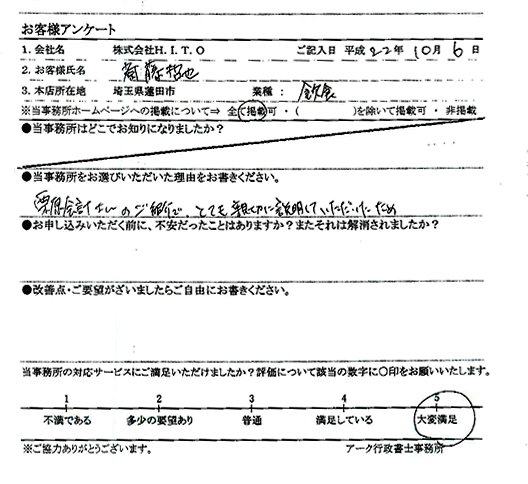 お客様アンケート
1. 会社名 株式会社H.I.T.O ご記入日 平成 22年 10月 6日
2. お客様氏名 齋藤哲也
3. 本店所在地 埼玉県蓮田市 業種： 飲食
※当事務所ホームページへの掲載について⇒ 全て掲載可・( )を除いて掲載可・非掲載
●当事務所はどこでお知りになりましたか？
●当事務所をお選びいただいた理由をお書きください。
栗原会計さんのご紹介で、とても親切に説明していただいたため
●お申し込みいただく前に、不安だったことはありますか？またそれは解消されましたか？
●改善点・ご要望がざいましたらご自由にお書きください。
当事務所の対応サービスにご満足いただけましたか？評価について該当の数字に○印をお願いいたします。
1 2 3 4 5
不満である 多少の要望あり 普通 満足している 大変満足
※ご協力ありがとうございます。 アーク行政書士事務所